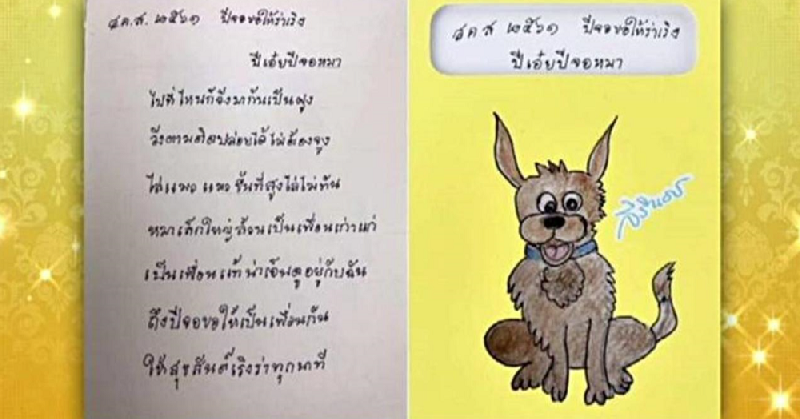 ส.ค.ส. ๒๕๖๑ ปีจอขอให้ร่าเริง
ปีเอ๋ยปีจอหมา
ไปที่ไหนก็วิ่งมากันเป็นฝูง
วิ่งตามติดปล่อยได้ไม่ต้องจูง
ไล่แมว แมวขึ้นที่สูงไล่ไม่ทัน
หมาเล็กใหญ่ล้วนเป็นเพื่อนเก่าแก่
เป็นเพื่อนแท้น่าเอ็นดูอยู่กับฉัน
ถึงปีจอขอให้เป็นเพื่อนกัน
ให้สุขสันต์เริงร่าทุกนาที
ส.ค.ส ๒๕๖๑ ปีจอขอให้ร่าเริง
ปีเอ๋ยปีจอหมา
สิรินธร